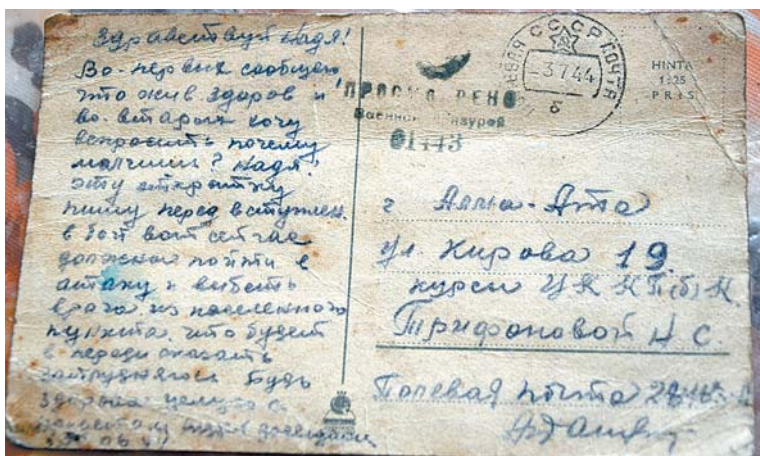 Здравствуй Надя!
Во-первых сообщаю
что жив здоров и
во-вторых хочу
вспросить почему
молчишь? Надя!
эту открытку
пишу перед вступлен.
в бой вот сейчас
должны пойти в
атаку и выбить
врага из населенного
пункта. что будет
в переди сказать
затрудняюсь Будь
здорова целую с
приветом
СССР ПОЧТА
-3 7 44
б
HINTA
1:25
PRIS
ПРОСМ РЕНО
Военной Цензурой
01443
г Алма-Ата
ул. Кирова 19
курсы ЦК КП(б)К.
Трифоновой Н С.
Полевая почта